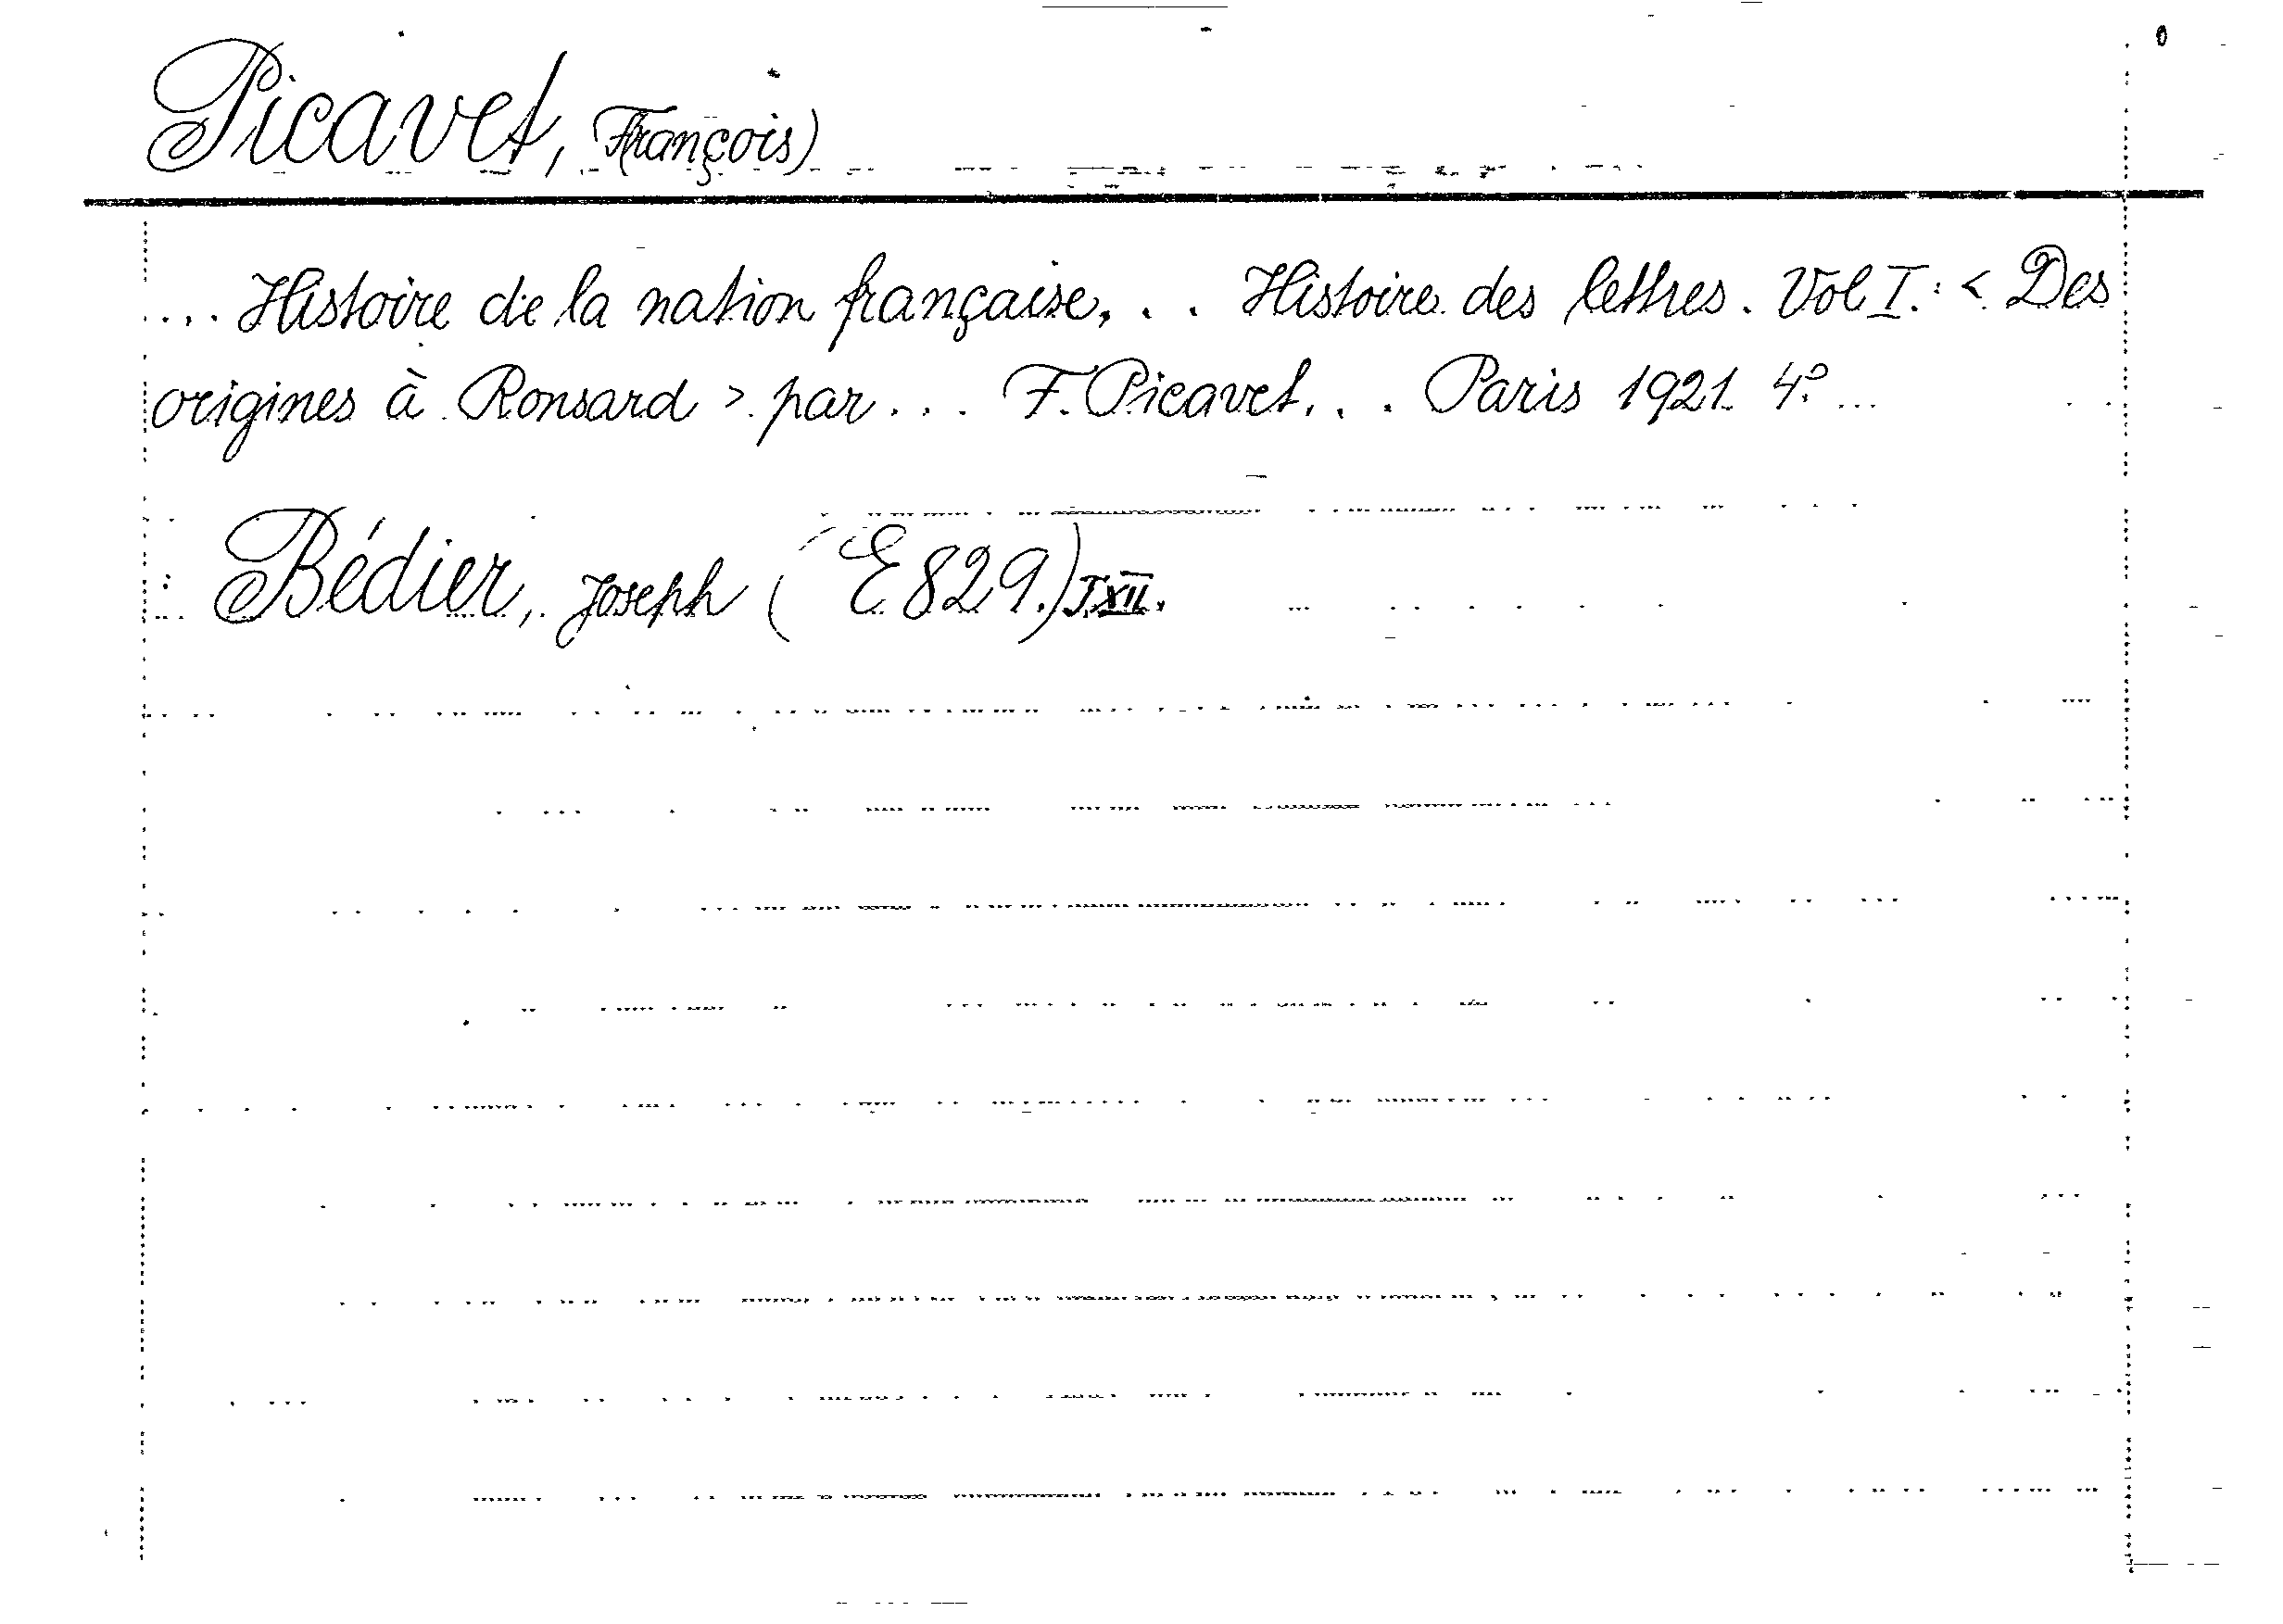 Picavet, François)
... Histoire de la nation française, . . Histoire des lettres. Vol I. : < Des
origines à Ronsard > par ... F. Picavet, . . Paris 1921. 4º
Bédier, Joseph ( E 829.) T.XII.